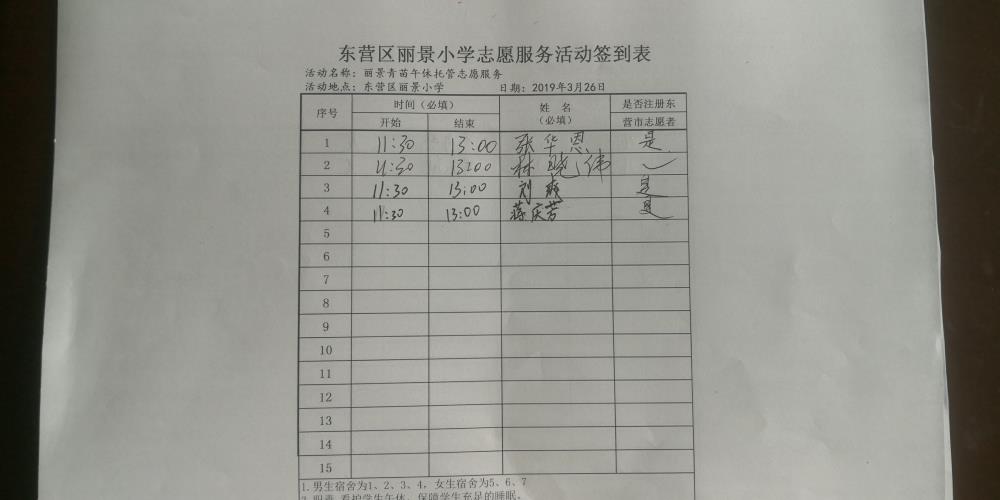 东营区丽景小学志愿服务活动签到表
活动名称：丽景青苗午休托管志愿服务
活动地点：东营区丽景小学 日期：2019年3月26日
序号 时间（必填） 姓名（必填） 是否注册东营市志愿者
开始 结束
1 11:30 13:00 张华恩 是
2 11:30 13:00 林晓伟 ✓
3 11:30 13:00 刘 是
4 11:30 13:00 蒋庆芳 是
5
6
7
8
9
10
11
12
13
14
15
1.男生宿舍为1、2、3、4，女生宿舍为5、6、7
2.职责：看护学生午休，保障学生充足的睡眠。